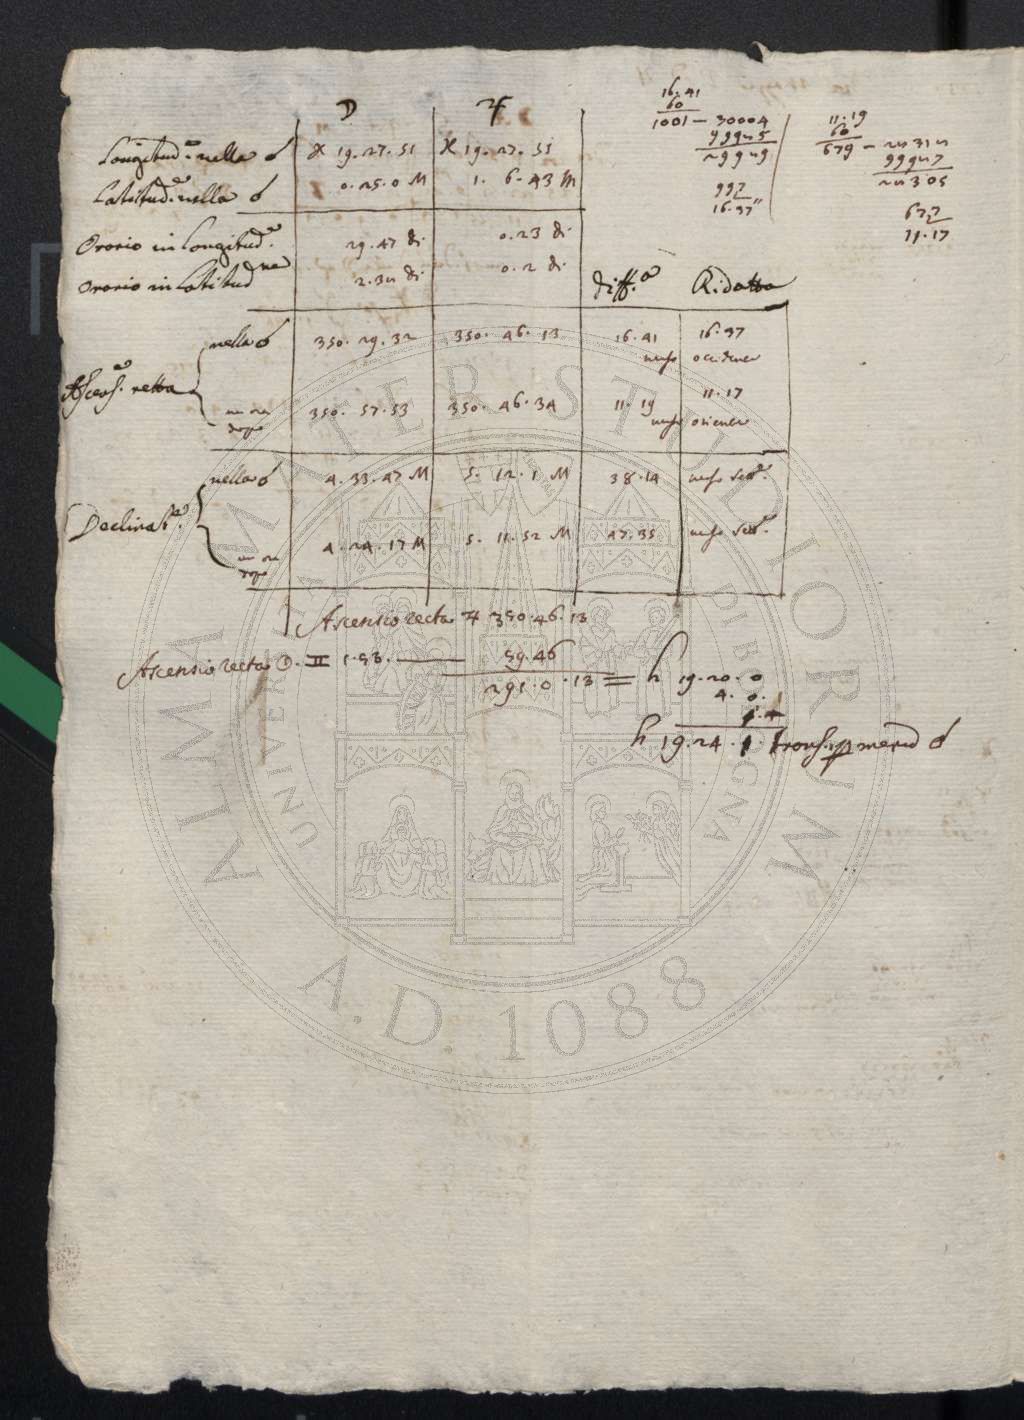 ☽ ♃
Longitud.e nella ☌ ♓ 19. 27. 51 ♓ 19. 27. 51
Latitud.e nella ☌ 0. 25. 0 M 1. 6. 43 M
Orario in Longitud.e 29. 47 di 0. 23 di
Orario in Latitud.ne 2. 32 di 0. 2 di
diff.a Ridotta
nella ☌ 350. 29. 32 350. 46. 13 16. 41 16. 37
verso occidente
Ascens.e retta
11. 17
un ora dopo 350. 57. 53 350. 46. 34 11. 19
verso oriente
nella ☌ 4. 33. 47 M 5. 12. 1 M 38. 14 verso Sett.e
Declinat.e
un ora dopo 4. 24. 17 M 5. 11. 52 M 47. 35 verso Sett.e
Ascensio recta ♃ 350. 46. 13
Ascensio recta ☉. ♊ 1. 53. — 59. 46
291. 0. 13 = h 19. 20. 0
4. 0.
h 19. 24. 1 transit. per merid ☌
16. 41
60
1001 — 30004
99925
29929
997
16. 37"
11. 19
60
679 — 22312
99927
22305
677
11. 17
ALMA MATER STUDIORUM
UNIVERSITÀ DI BOLOGNA
A.D. 1088